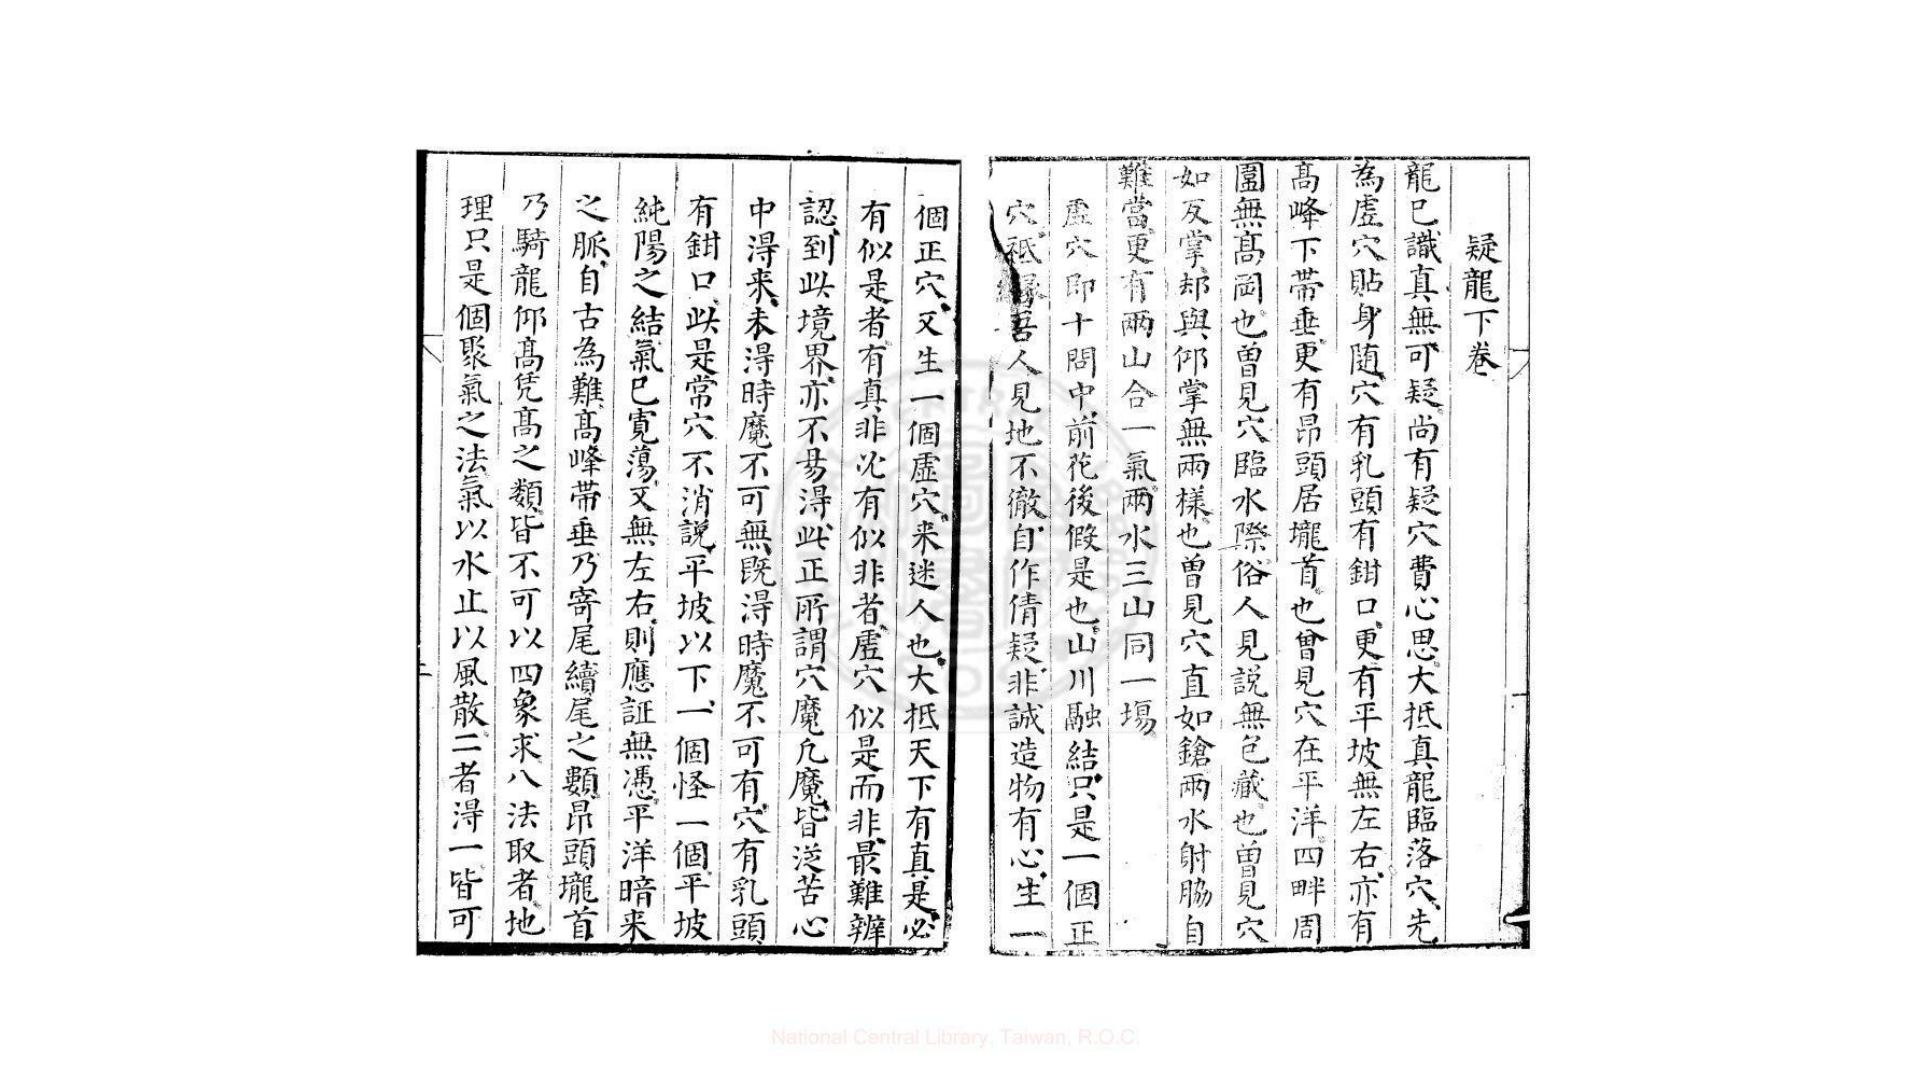 疑龍下卷
龍已識真無可疑尚有疑穴費心思大抵真龍臨落穴先
為虛穴貼身随穴有乳頭有鉗口更有平坡無左右亦有
髙峰下帶垂更有昂頭居壠首也曾見穴在平洋四畔周
圍無髙岡也曾見穴臨水際俗人見説無包藏也曾見穴
如反掌却與仰掌無兩樣也曾見穴直如鎗兩水射脇自
難當更有兩山合一氣兩水三山同一塲
虛穴即十問中前花後假是也山川融結只是一個正
穴祗緣吾人見地不徹自作倩疑非誠造物有心生一
個正穴又生一個虛穴来迷人也大抵天下有真是必
有似是者有真非必有似非者虛穴似是而非最難辨
認到此境界亦不易得此正所謂穴魔凢魔皆從苦心
中得来未得時魔不可無既得時魔不可有穴有乳頭
有鉗口此是常穴不消説平坡以下一個怪一個平坡
純陽之結氣已寬蕩又無左右則應証無憑平洋暗来
之脈自古為難髙峰帶垂乃寄尾續尾之類昂頭壠首
乃騎龍仰髙凭髙之類皆不可以四象求八法取者地
理只是個聚氣之法氣以水止以風散二者得一皆可
National Central Library, Taiwan, R.O.C.